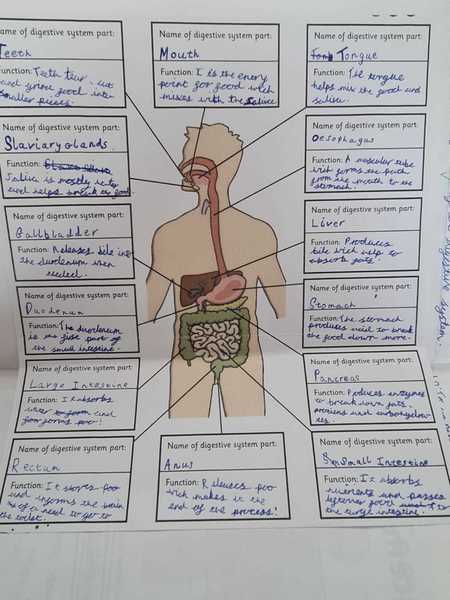 Name of digestive system part:
Teeth
Function: Teeth tear, cut
and grind food into
smaller pieces.
Name of digestive system part:
Mouth
Function: I is the enery
point for food wich
mixes with the saliva
Name of digestive system part:
Tongue
Function: The tongue
helps mix the food and
saliva.
Name of digestive system part:
Slaviary glands.
Function:
Saliva is mostly water
and helps break up food
Name of digestive system part:
Oesophagus
Function: A muscular tube
wich forms the path
from the mouth to the
stomach.
Name of digestive system part:
Gallbladder
Function: Releases bile into
the duodenum when
needed.
Name of digestive system part:
Liver
Function: Produces
bile wich help to
absorb fats.
Name of digestive system part:
Duodenum
Function: The duodenum
is the first part of
the small intestine.
Name of digestive system part:
Stomach
Function: The stomach
produces acid to break
the food down more.
Name of digestive system part:
Large Intestine
Function: It absorbs
water and
forms poo!
Name of digestive system part:
Pancreas
Function: Produces enzymes
to break down fats,
proteins and carbohydra-
es.
Name of digestive system part:
Rectum
Function: It stores poo
and informs the brain
of a need to get to
the toilet.
Name of digestive system part:
Anus
Function: Releases poo
wich makes it the
end of the process!
Name of digestive system part:
Small Intestine
Function: It absorbs
nutrients and passes
food to
the large intestine.
digestive system.